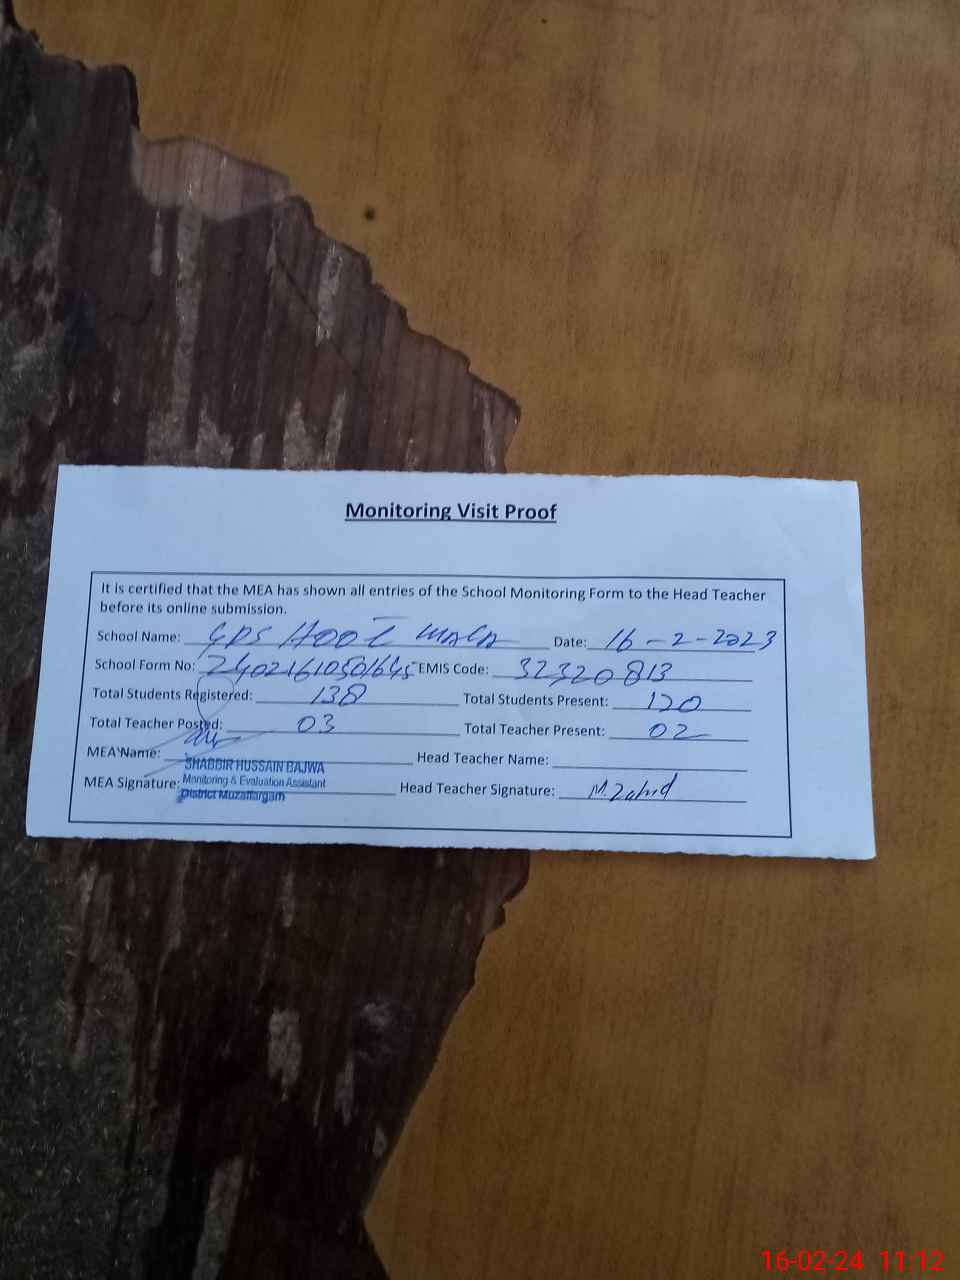 Monitoring Visit Proof
It is certified that the MEA has shown all entries of the School Monitoring Form to the Head Teacher
before its online submission.
School Name: GPS Hoot wala Date: 16-2-2023
School Form No: 24021610501645 EMIS Code: 32320813
Total Students Registered: 138 Total Students Present: 120
Total Teacher Posted: 03 Total Teacher Present: 02
MEA Name: SHABBIR HUSSAIN BAJWA Head Teacher Name:
Monitoring & Evaluation Assistant
MEA Signature: District Muzaffargarh Head Teacher Signature: M. Zahid
16-02-24 11:12